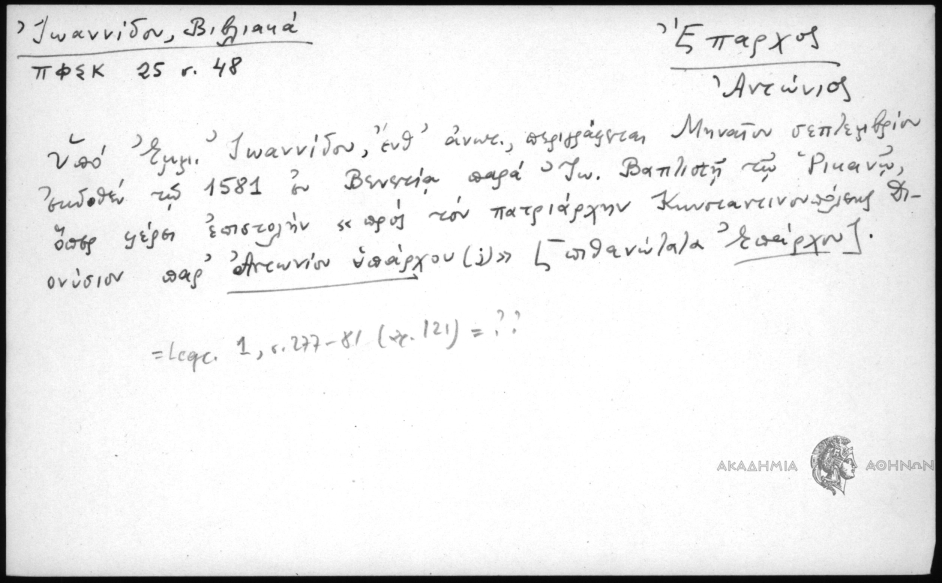 Ἰωαννίδου, Βιβλιακά
ΠΦΣΚ 25 σ. 48
Ἔπαρχος
Ἀντώνιος
Ὑπό Ἐμμ. Ἰωαννίδου, ἔνθ' ἀνωτ., περιγράφεται Μηναῖον σεπτεμβρίου
ἐκδοθέν τῷ 1581 ἐν Βενετίᾳ παρά Ἰω. Βαπτιστῇ τῷ Ῥικανῷ,
ὅπερ φέρει ἐπιστολήν «πρός τόν πατριάρχην Κωνσταντινουπόλεως Δι-
ονύσιον παρ' Ἀντωνίου ὑπάρχου (;)» [πιθανώτατα Ἐπάρχου].
= Legr. 1, σ. 277-81 (ἀρ. 121) = ??
ΑΚΑΔΗΜΙΑ ΑΘΗΝΩΝ